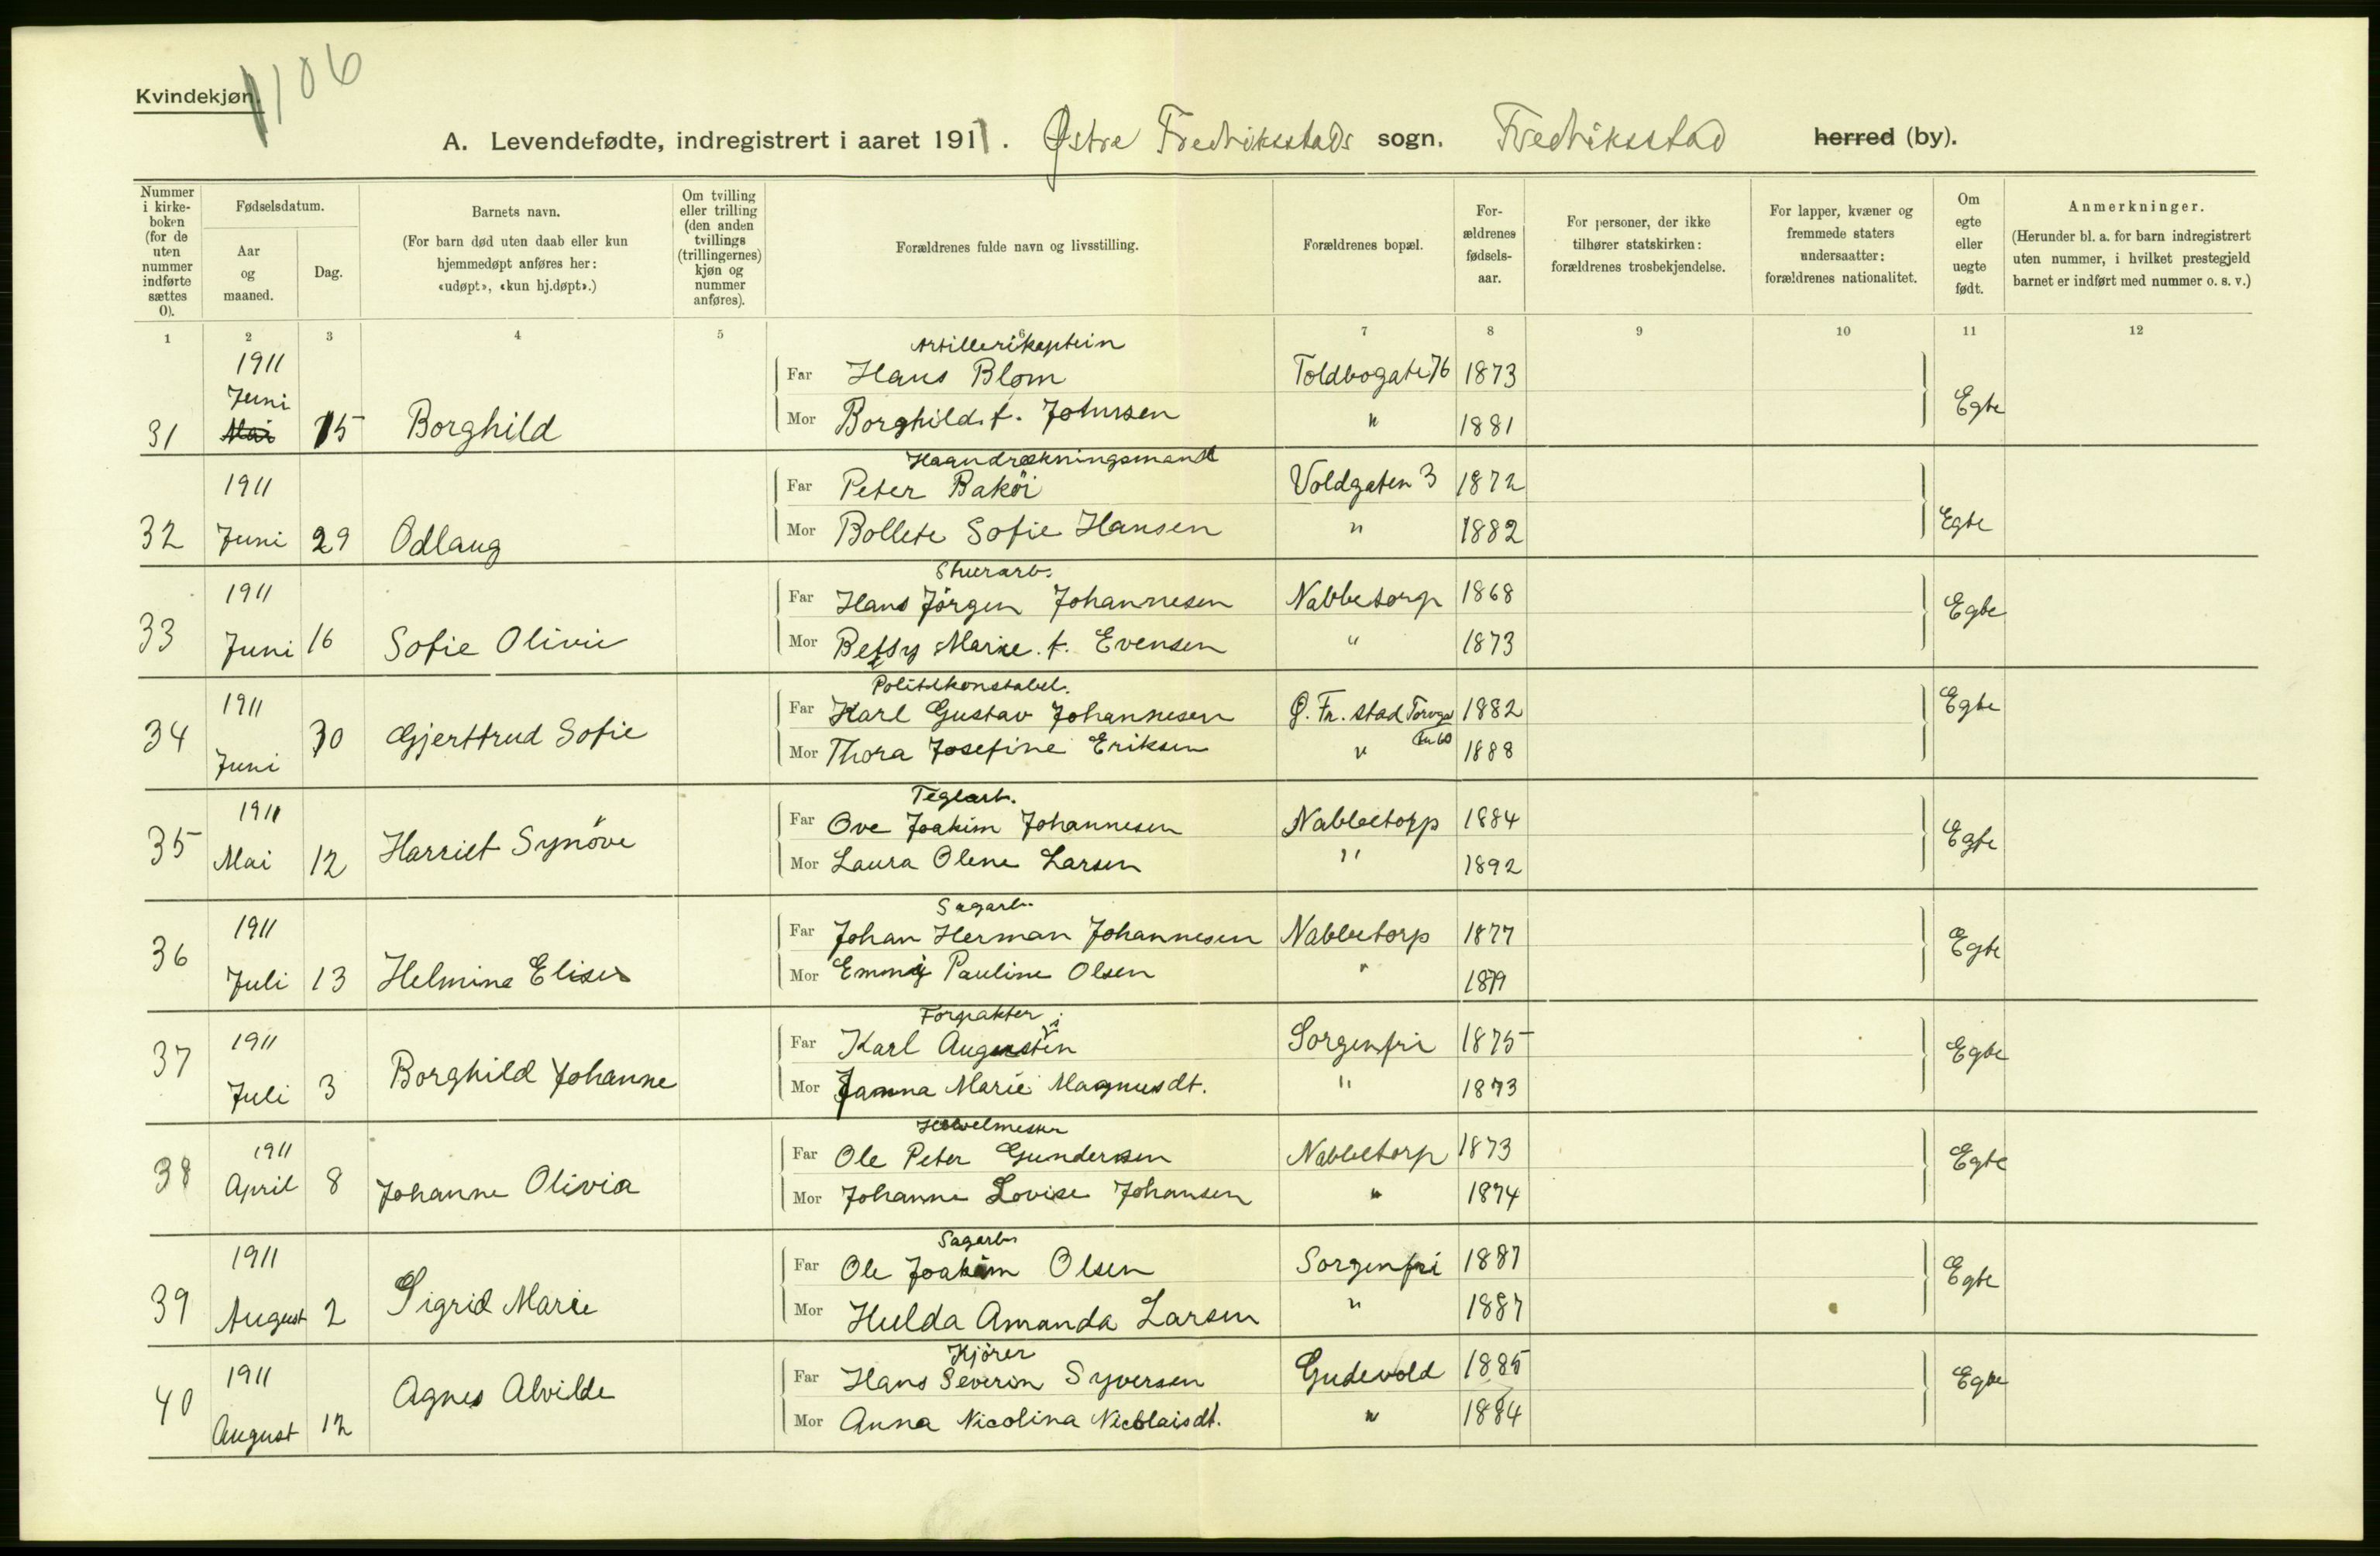 Kvindekjøn.
1106
A. Levendefødte, indregistrert i aaret 1911. Østre Fredriksstads sogn. Fredriksstad herred (by).
Nummer i kirkeboken (for de uten nummer indførte sættes 0).
Fødselsdatum.
Aar og maaned.
Dag.
Barnets navn.
(For barn død uten daab eller kun hjemmedøpt anføres her: «udøpt», «kun hj.døpt».)
Om tvilling eller trilling (den anden tvillings (trillingernes) kjøn og nummer anføres).
Forældrenes fulde navn og livsstilling.
Forældrenes bopæl.
Forældrenes fødselsaar.
For personer, der ikke tilhører statskirken: forældrenes trosbekjendelse.
For lapper, kvæner og fremmede staters undersaatter: forældrenes nationalitet.
Om egte eller uegte født.
Anmerkninger.
(Herunder bl. a. for barn indregistrert uten nummer, i hvilket prestegjeld barnet er indført med nummer o. s. v.)
1 2 3 4 5 6 7 8 9 10 11 12
Artillerikaptein
1911 Far Hans Blom Toldbogate 76 1873
Juni
31 Mai 15 Borghild Mor Borghild f. Johnsen " 1881 Egte
Haandrækningsmand
1911 Far Peter Bakøi Voldgaten 3 1872
32 Juni 29 Odlaug Mor Bollete Sofie Hansen " 1882 Egte
1911 Far Hans Jörgen Johannesen Nabbetorp 1868
33 Juni 16 Sofie Olivie Mor Betsy Marie f. Evensen " 1873 Egte
Politikonstabel.
1911 Far Karl Gustav Johannesen Ø. Fr. stad 1882
34 Juni 30 Gjerttrud Sofie Mor Thora Josefine Eriksen " 1888 Egte
Teglarb.
1911 Far Ove Joakim Johannesen Nabbetorp 1884
35 Mai 12 Harriet Synöve Mor Laura Olene Larsen " 1892 Egte
Sagarb.
1911 Far Johan Herman Johannesen Nabbetorp 1877
36 Juli 13 Helmine Elise Mor Emmy Pauline Olsen " 1879 Egte
Forpakter
1911 Far Karl Augustin Sorgenfri 1875
37 Juli 3 Borghild Johanne Mor Janna Marie Magnusdt. " 1873 Egte
Høvelmester
1911 Far Ole Peter Gundersen Nabbetorp 1873
38 April 8 Johanne Olivia Mor Johanne Lovise Johansen " 1874 Egte
Sagarb.
1911 Far Ole Joakim Olsen Sorgenfri 1887
39 August 2 Sigrid Marie Mor Hulda Amanda Larsen " 1887 Egte
Kjörer
1911 Far Hans Severin Syversen Gudevold 1885
40 August 12 Agnes Alvilde Mor Anna Nicolina Nicolaisdt. " 1884 Egte